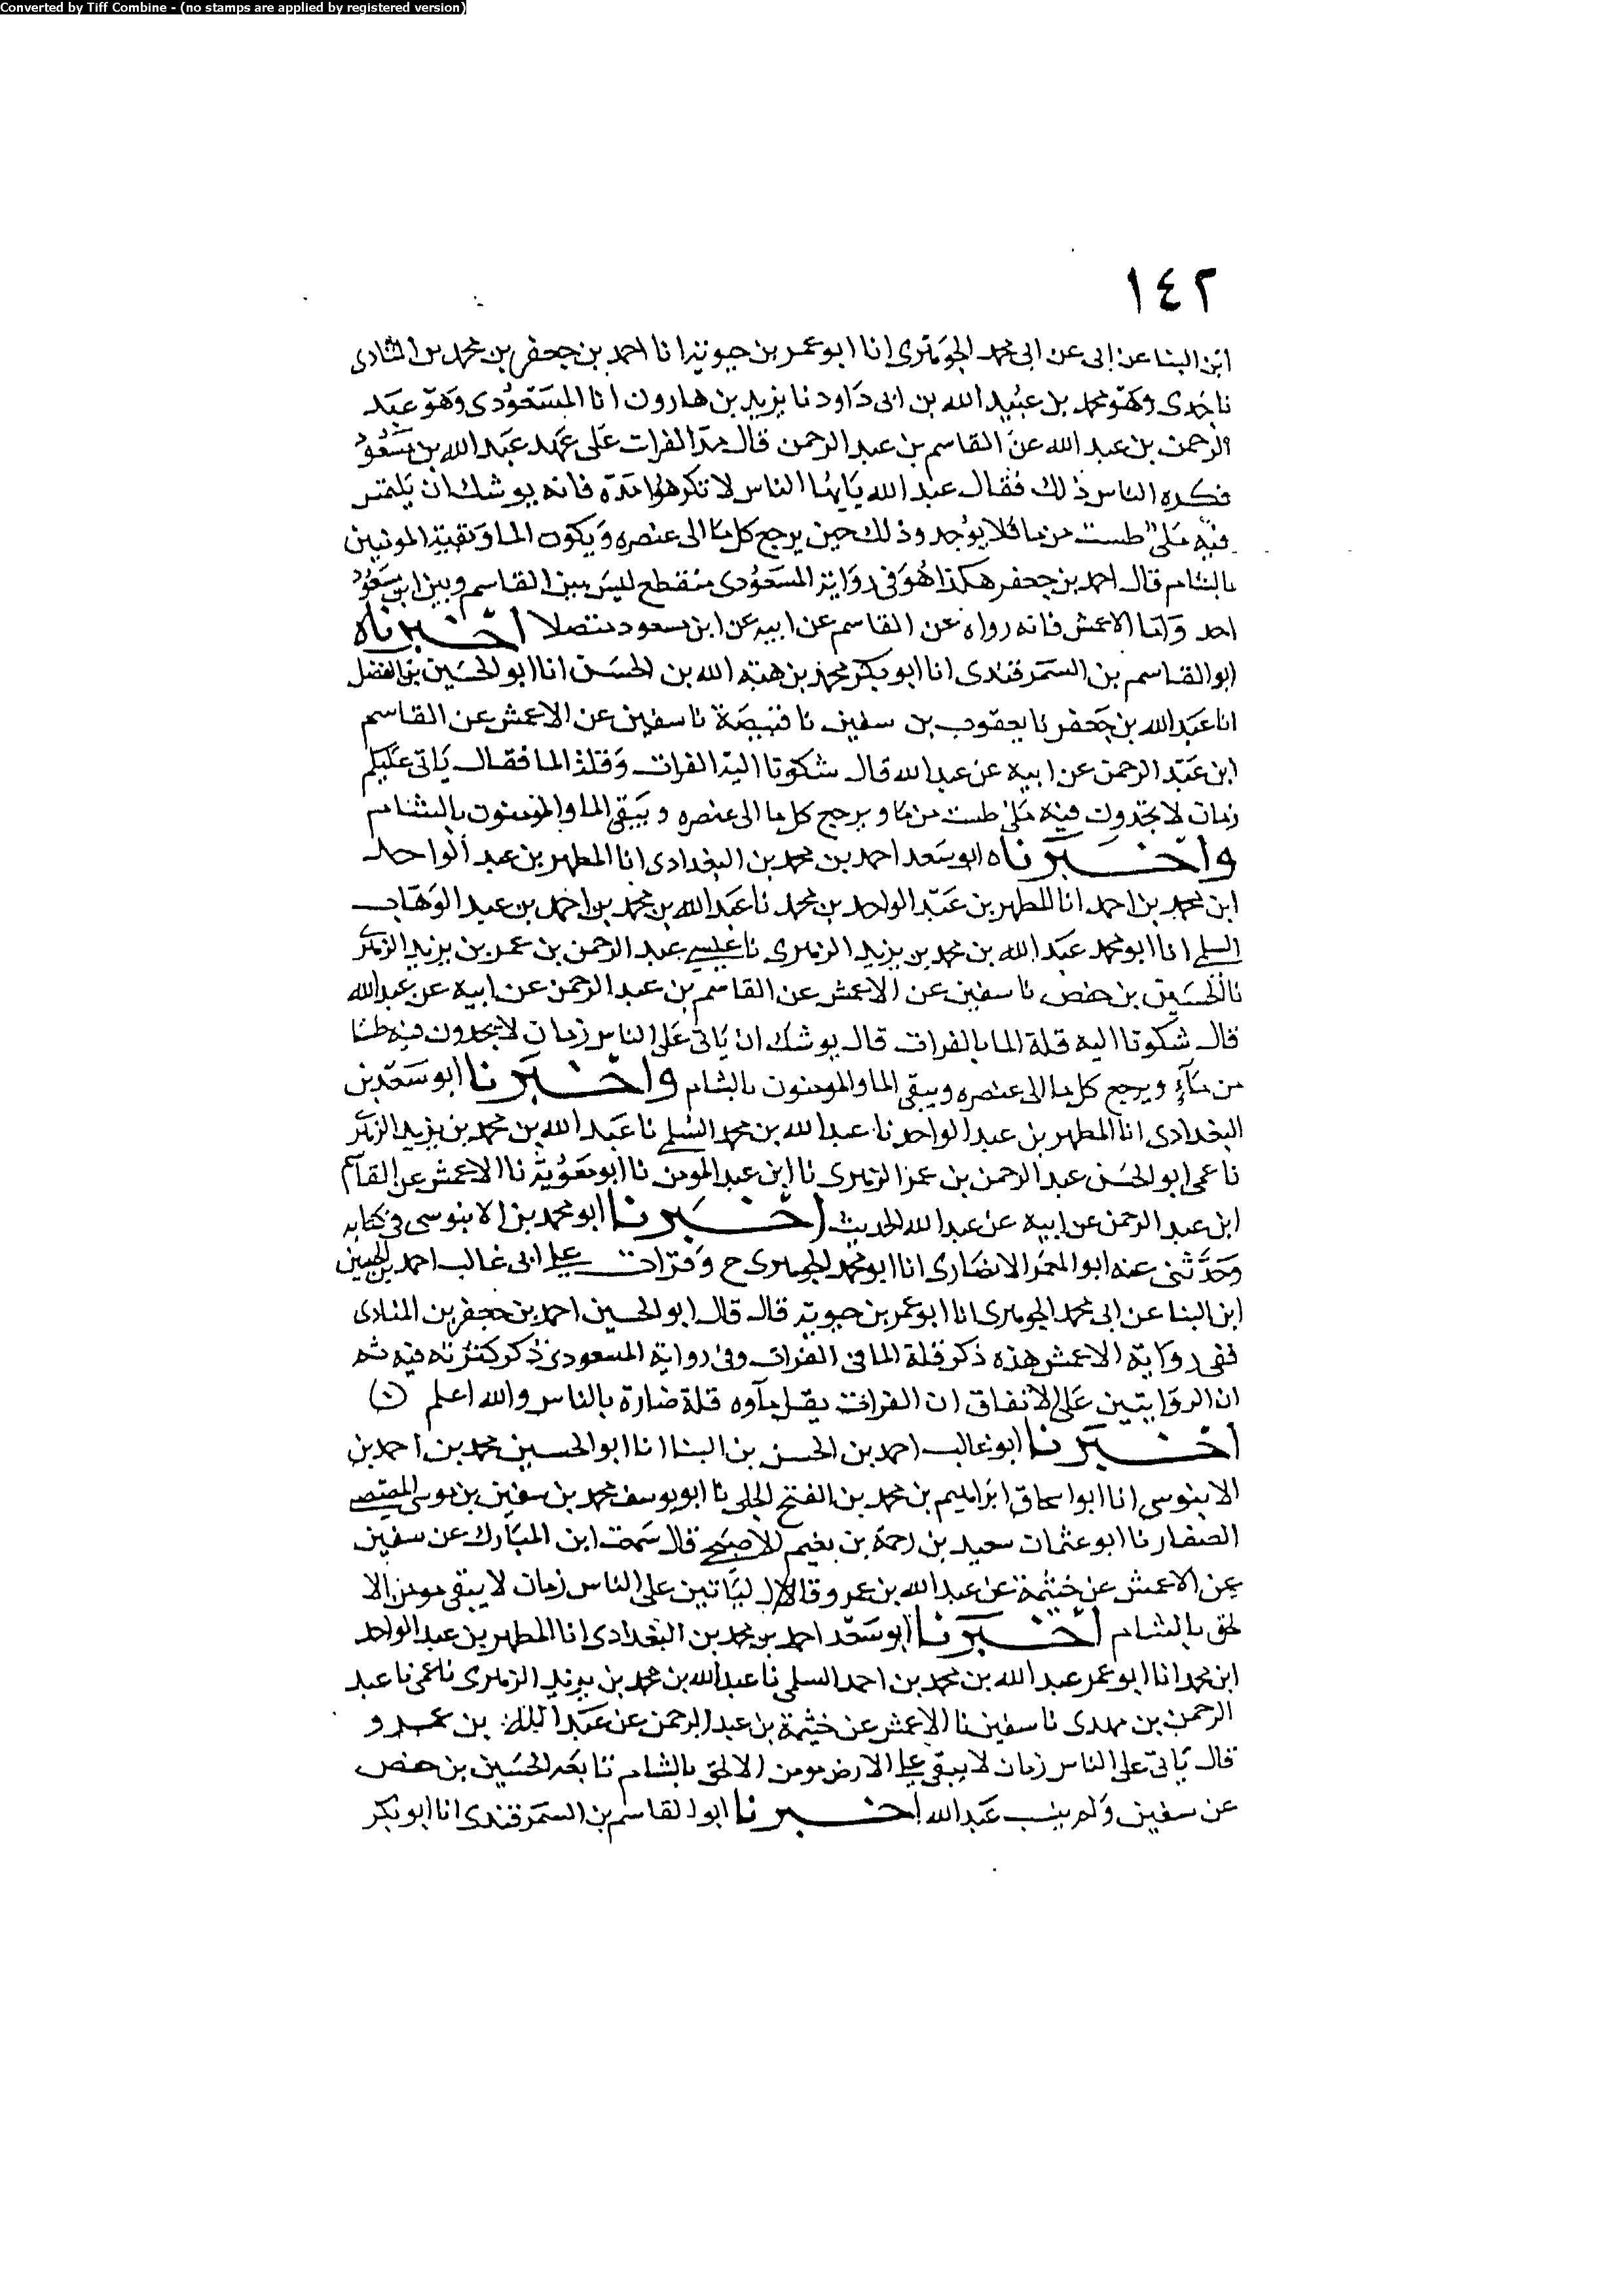 Converted by Tiff Combine - (no stamps are applied by registered version)
١٤٢
ابن البنا عن ابى عن ابى محمد الجوهرى انا ابو عمر بن حيويه انا احمد بن جعفر بن محمد بن المنادى
نا جدى وهو محمد بن عبيد الله بن ابى داود نا يزيد بن هارون انا المسعودى وهو عبد
الرحمن بن عبد الله عن القاسم بن عبد الرحمن قال مد الفرات على عهد عبد الله بن مسعود
فكره الناس ذلك فقال عبد الله يايها الناس لا تكرهوا مده فانه يوشك ان يلتمس
فيه ملى طست من ما فلا يوجد وذلك حين يرجع كل ما الى عنصره ويكون الما وبقية المومنين
بالشام قال احمد بن جعفر هكذا هو فى رواية المسعودى منقطع ليس بين القاسم وبين ابن مسعود
احد واما الاعمش فانه رواه عن القاسم عن ابيه عن ابن مسعود متصلا اخبرناه
ابو القاسم بن السمرقندى انا ابو بكر محمد بن هبة الله بن الحسن انا ابو الحسين بن الفضل
انا عبد الله بن جعفر نا يعقوب بن سفين نا قبيصة نا سفين عن الاعمش عن القاسم
ابن عبد الرحمن عن ابيه عن عبد الله قال شكونا اليه الفرات وقلة الما فقال ياتى عليكم
زمان لا تجدون فيه ملى طست من ما ويرجع كل ما الى عنصره ويبقى الما والمومنون بالشام
واخبرناه ابو سعد احمد بن محمد بن البغدادى انا المطهر بن عبد الواحد
ابن محمد بن احمد انا المطهر بن عبد الواحد بن محمد نا عبد الله بن محمد بن احمد بن عبد الوهاب
السلمى انا ابو محمد عبد الله بن محمد بن يزيد الزهرى نا عبد الرحمن بن عمر بن يزيد الزهرى
نا الحسين بن حفص نا سفين عن الاعمش عن القاسم بن عبد الرحمن عن ابيه عن عبد الله
قال شكونا اليه قلة الما بالفرات قال يوشك ان ياتى على الناس زمان لا يجدون فيه طستا
من مآء ويرجع كل ما الى عنصره ويبقى الما والمومنون بالشام واخبرنا ابو سعد بن
البغدادى انا المطهر بن عبد الواحد نا عبد الله بن محمد السلمى نا عبد الله بن محمد بن يزيد الزهرى
نا عمى ابو الحسن عبد الرحمن بن عمر الزهرى نا ابن عبد المومن نا ابو معوية نا الاعمش عن القاسم
ابن عبد الرحمن عن ابيه عن عبد الله الحديث اخبرنا ابو محمد بن الابنوسى فى كتابه
وحدثنى عنه ابو المعمر الانصارى انا ابو محمد الجوهرى ح وقرات على ابى غالب احمد بن الحسين
ابن البنا عن ابى محمد الجوهرى انا ابو عمر بن حيويه قال قال ابو الحسين احمد بن جعفر بن المنادى
ففى رواية الاعمش هذه ذكر قلة الما فى الفرات وفى رواية المسعودى ذكر كثرته فيه ثم
ان الروايتين على الاتفاق ان الفرات يقل مآوه قلة ضارة بالناس والله اعلم
اخبرنا ابو غالب احمد بن الحسن بن البنا انا ابو الحسين محمد بن احمد بن
الابنوسى انا ابو اسحاق ابراهيم بن محمد بن الفتح الجلى نا ابو يوسف محمد بن سفين بن موسى المصيصى
الصفار نا ابو عثمان سعيد بن رحمة بن نعيم الاصبحى قال سمعت ابن المبارك عن سفين
عن الاعمش عن خثيمة عن عبد الله بن عمرو قال لياتين على الناس زمان لا يبقى مومن الا
لحق بالشام اخبرنا ابو سعد احمد بن محمد بن البغدادى انا المطهر بن عبد الواحد
ابن محمد انا ابو عمر عبد الله بن محمد بن احمد السلمى نا عبد الله بن محمد بن يزيد الزهرى نا عمى نا عبد
الرحمن بن مهدى نا سفين نا الاعمش عن خثيمة بن عبد الرحمن عن عبد الله بن عمرو
قال ياتى على الناس زمان لا يبقى على الارض مومن الا لحق بالشام تابعه الحسين بن حفص
عن سفين ولم ينسب عبد الله اخبرنا ابو القاسم بن السمرقندى انا ابو بكر